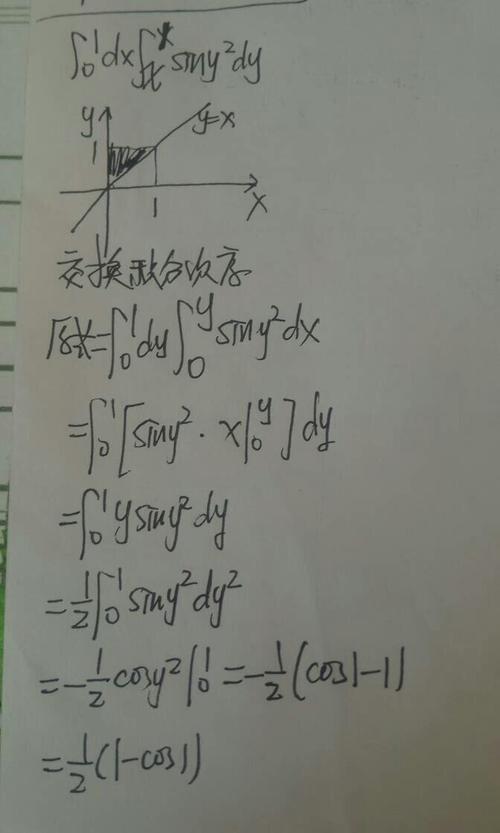 ∫₀¹dx∫ₓ siny²dy
y
y=x
1
1
x
交换积分次序
原式=∫₀¹dy∫₀ʸsiny²dx
=∫₀¹[siny²·x|₀ʸ]dy
=∫₀¹ysiny²dy
=1/2∫₀¹siny²dy²
=-1/2cosy²|₀¹=-1/2(cos1-1)
=1/2(1-cos1)